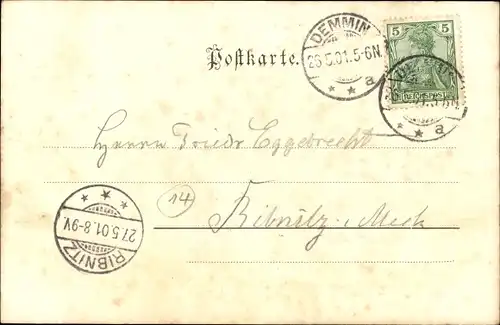 DEMMIN
26.5.01.5-6N.
a
5 5
Postkarte.
DEMMIN
a
Herrn Friedr Eggebrecht
14
Ribnitz i. Meck
27.5.01.8-9V.
RIBNITZ